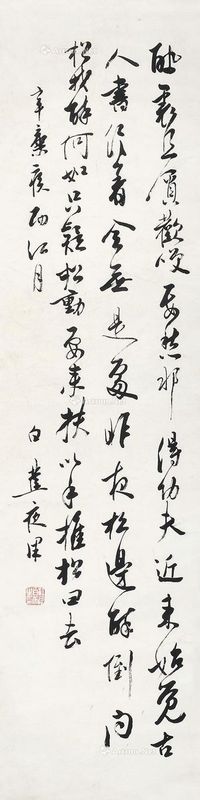 醉裏且貪歡咲要愁那得功夫近来始覺古
人書信着全無是處昨夜松邊醉倒問
松我醉何如只疑松動要來扶以手推松曰去
辛棄疾西江月
白蕉夜